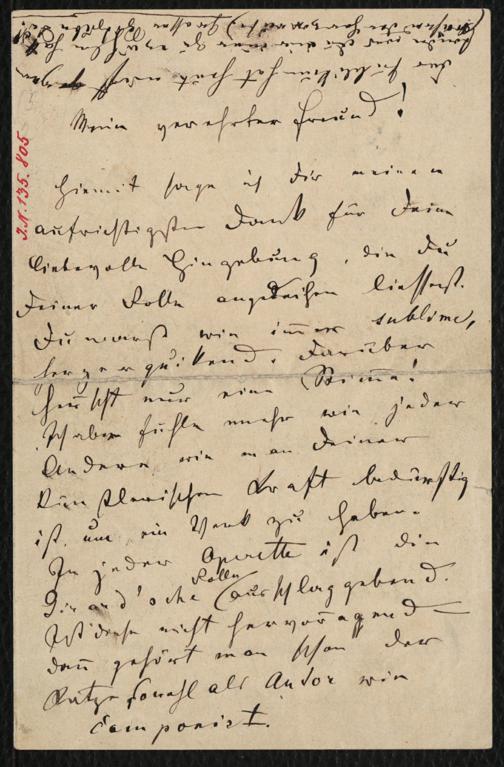 Mein verehrter Freund!
Hiemit sage ich Dir meinen
aufrichtigsten Dank für Deine
liebevolle Hingebung, die Du
Deiner Rolle angedeihen liessest.
Du warst wie immer sublime,
herzerquickend. Darüber
herrscht nur eine Stimme!
Ich aber fühle mehr wie jeder
Andere wie man Deiner
künstlerischen Kraft bedürftig
ist, um ein Werk zu heben.
In jeder Operette ist die
Girardi'sche Rolle ausschlaggebend.
Ist diese nicht hervorragend –
dann gehört man schon der
Katze sowohl als Autor wie
Componist.
I.N. 135.805